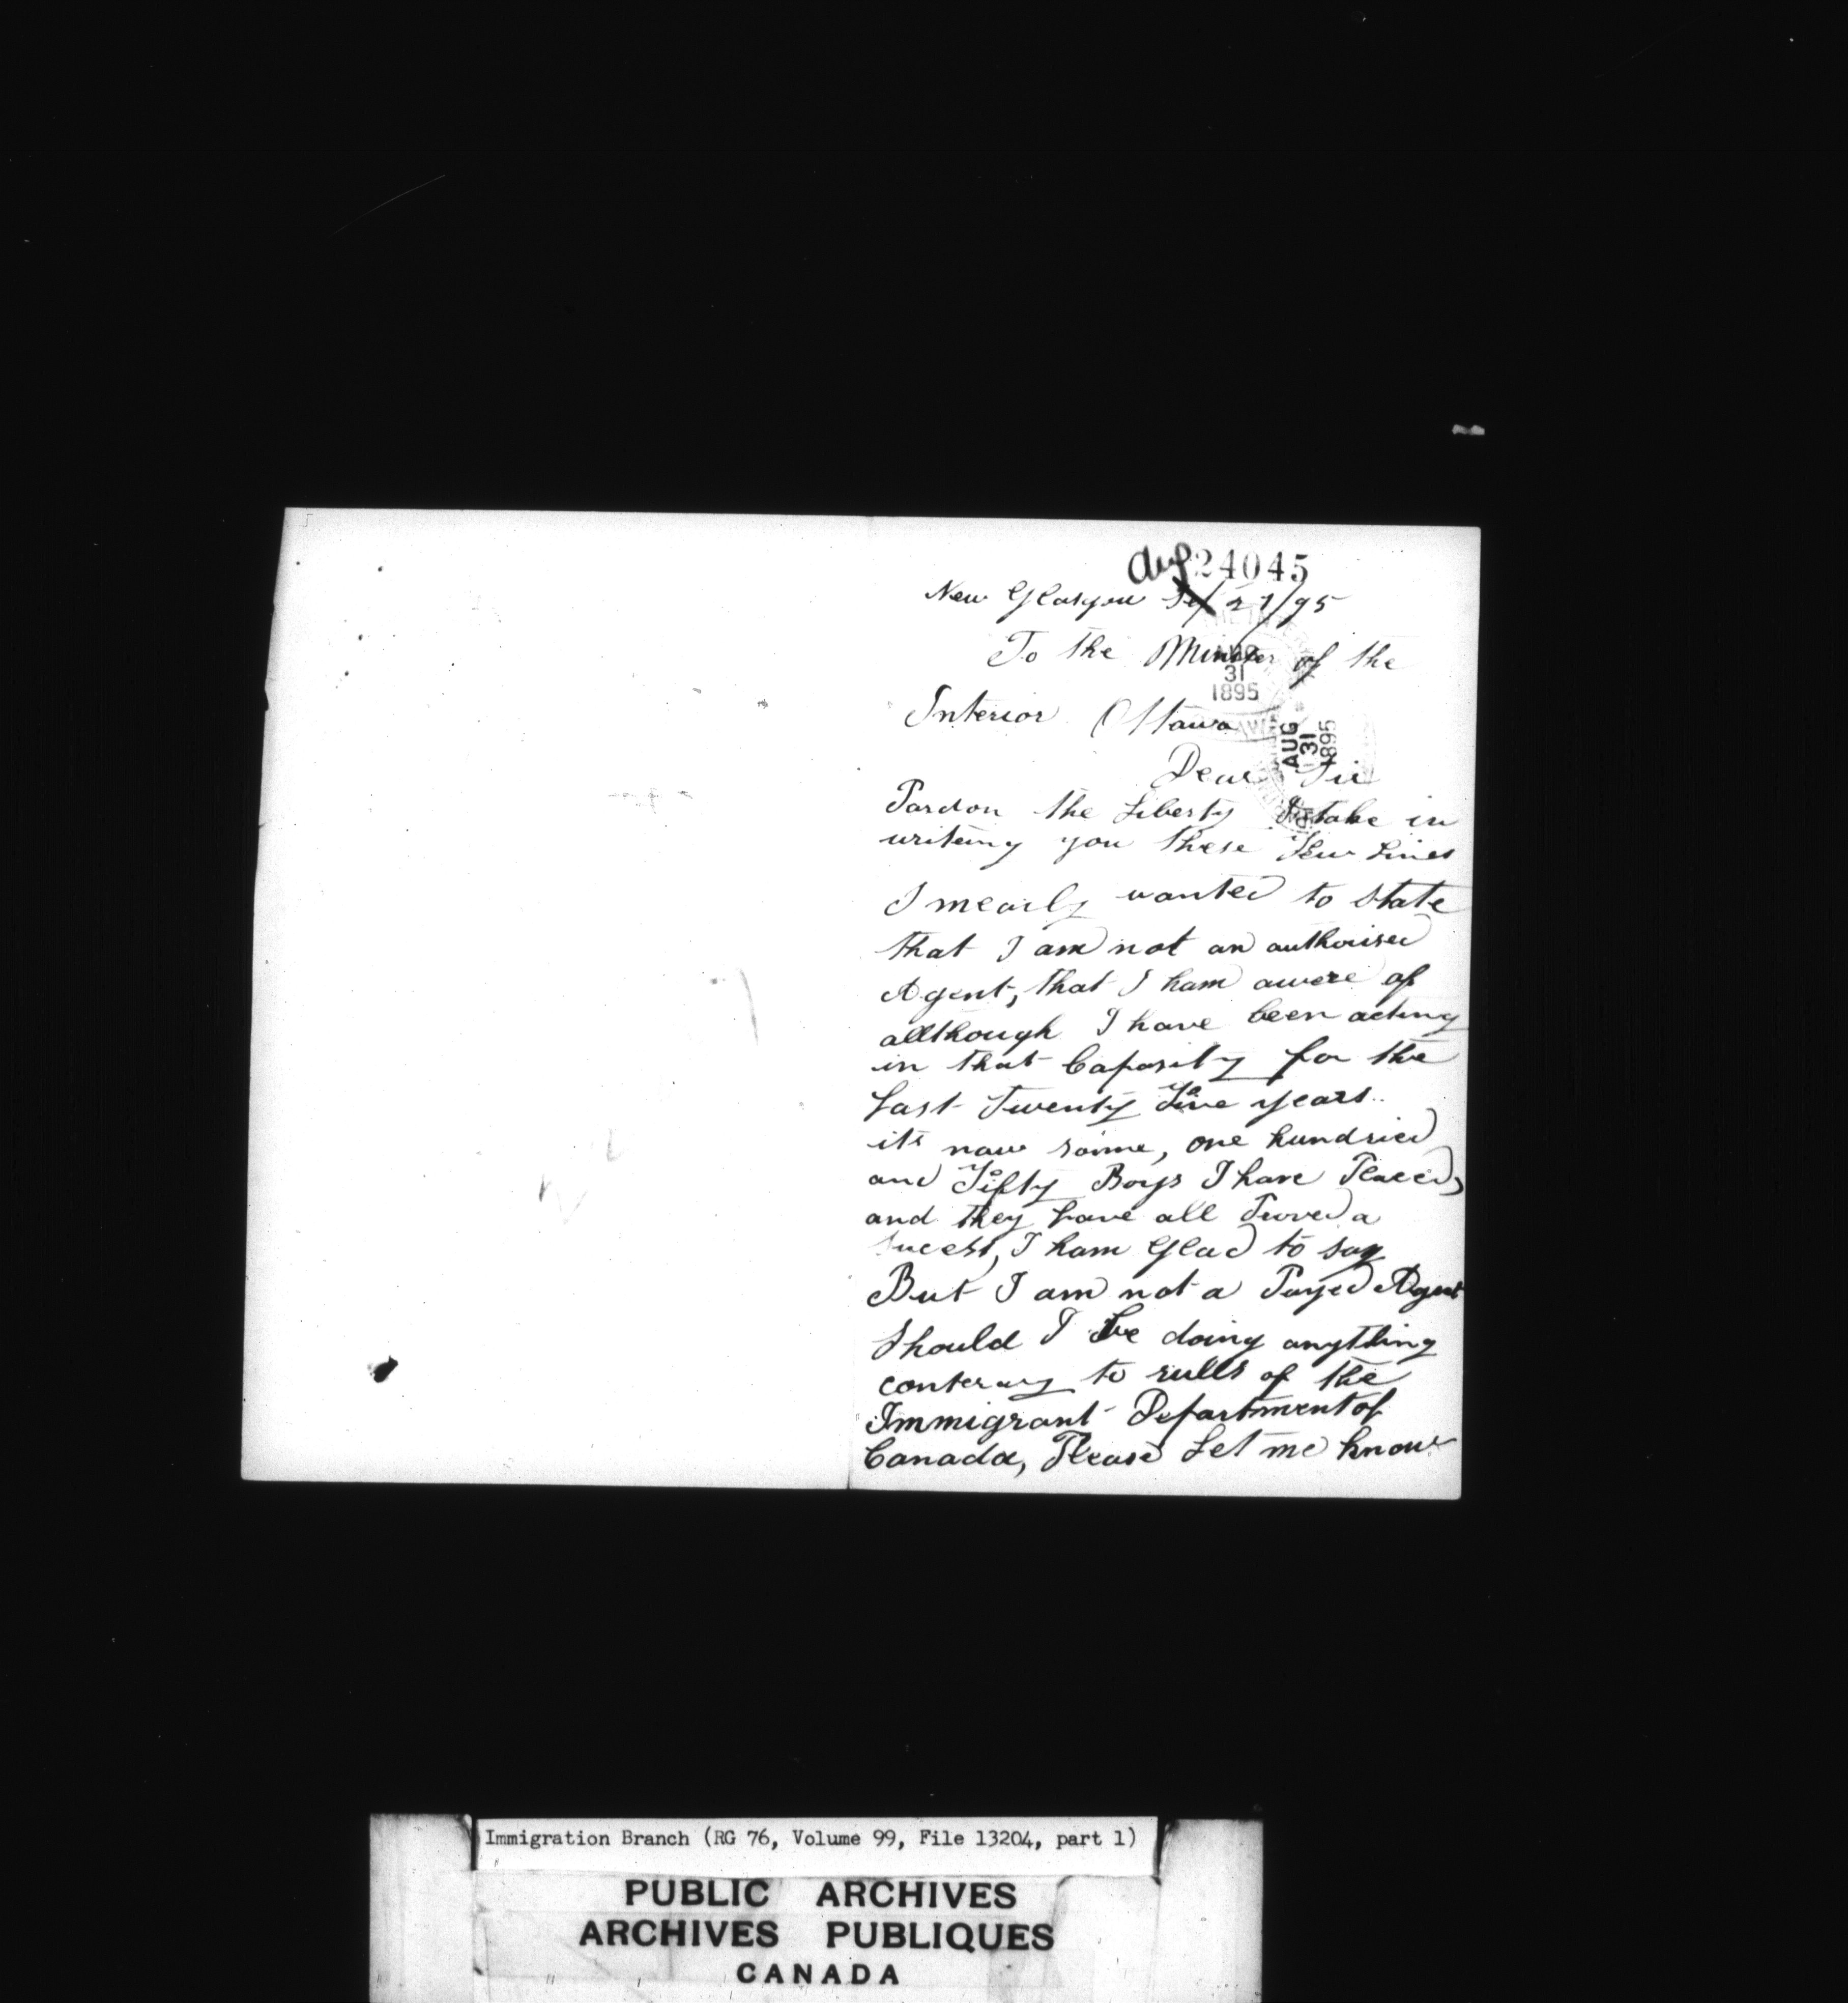 Aug 24045
New Glasgow 27/95
To the Minister of the
AUG
31
1895
Interior Ottawa
AUG
31
1895
Dear Sir
Pardon the Liberty I take in
writeing you these Few Lines
I mearly wanted to State
that I am not an authorised
Agent, that I ham awere of
allthough I have been acting
in that Capasity for the
Last Twenty Five years..
its now some, one hundried
and Fifty Boys I have Placed,
and they have all Proved a
Sucess, I ham Glad to say
But I am not a Payed Agent
Should I be doing anything
conterary to rulls of the
Immigrant Department of
Canada, Please Let me know
Immigration Branch (RG 76, Volume 99, File 13204, part 1)
PUBLIC ARCHIVES
ARCHIVES PUBLIQUES
CANADA